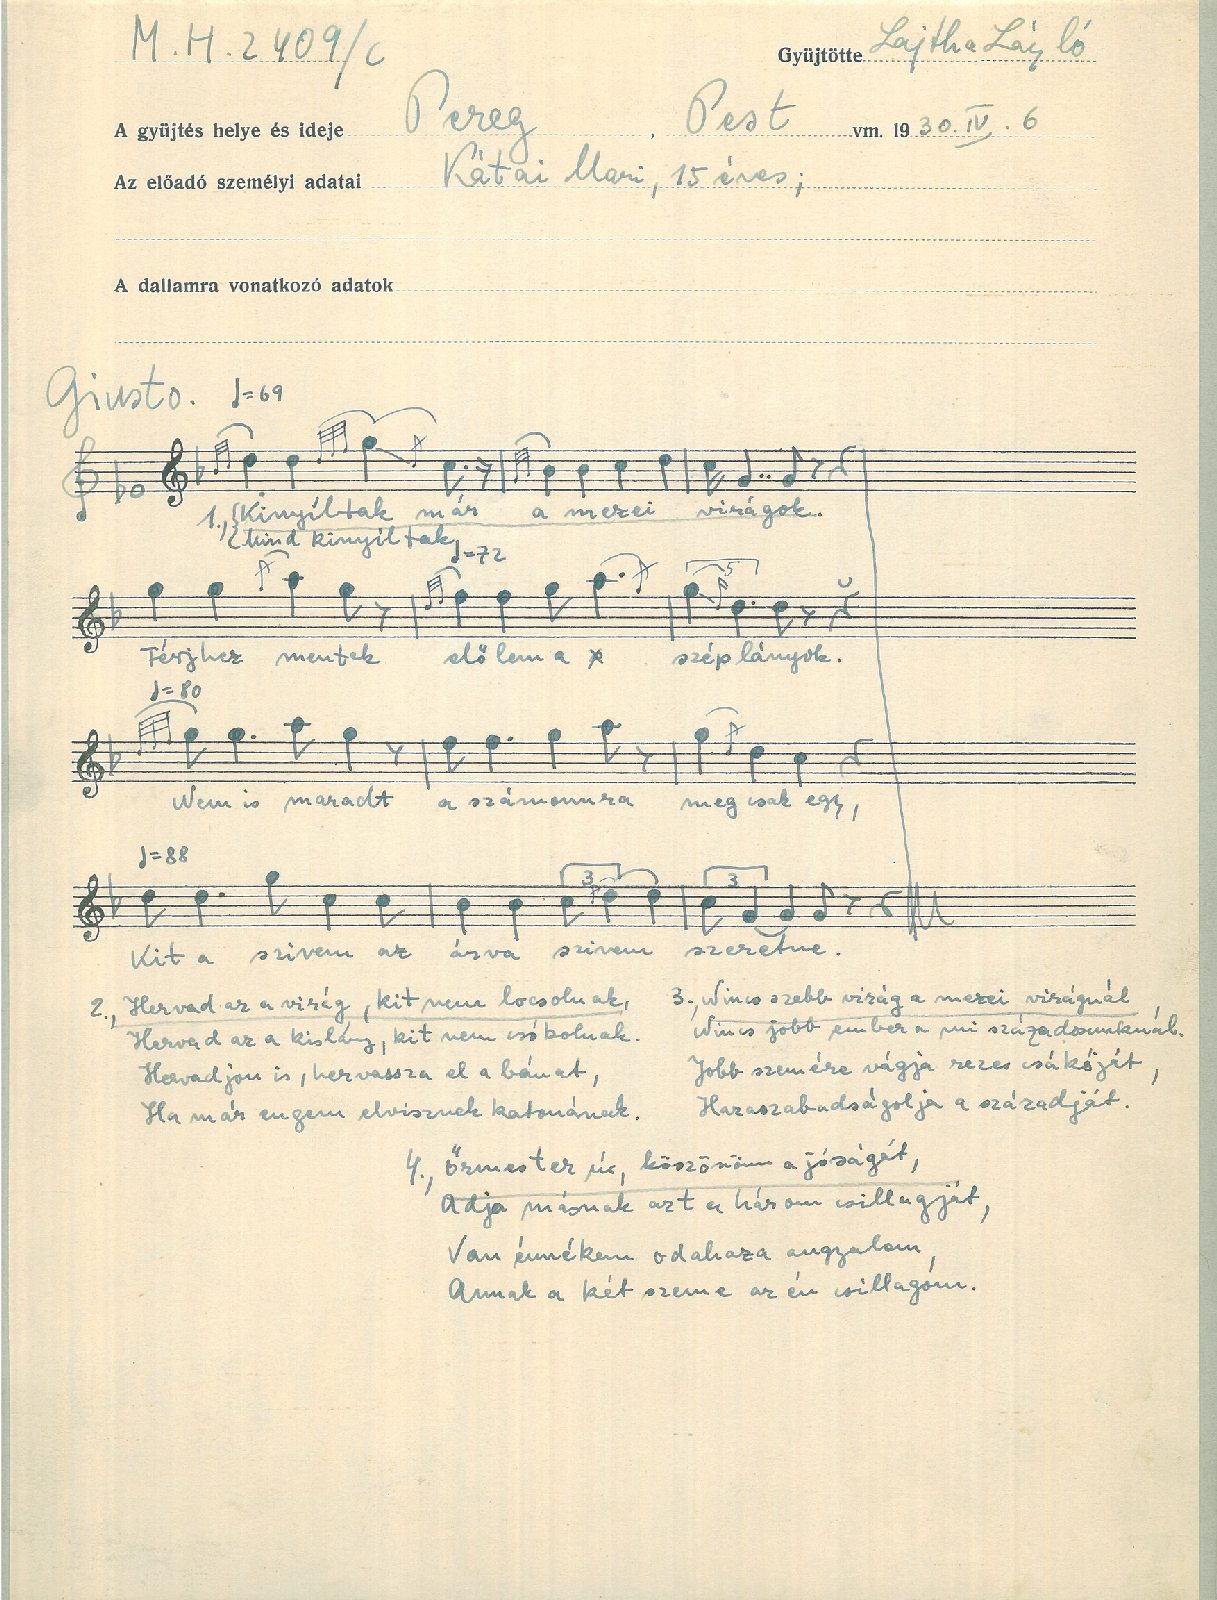 M.H. 2409/c
Gyüjtötte Lajtha László
A gyüjtés helye és ideje Pereg, Pest vm. 1930. IV. 6
Az előadó személyi adatai Kátai Mari, 15 éves;
A dallamra vonatkozó adatok
Giusto. ♩=69
1., Kinyíltak már a mezei virágok.
Mind kinyíltak
♩=72
Férjhez mentek előlem a szép lányok.
♩=80
Nem is maradt a számomra meg csak egy,
♩=88
3 3
Kit a szivem az árva szivem szeretne.
2., Hervad az a virág, kit nem locsolnak,
Hervad az a kislány, kit nem csókolnak.
Hervadjon is, hervassza el a bánat,
Ha már engem elvisznek katonának.
3., Nincs szebb virág a mezei virágnál,
Nincs jobb ember a mi századosunknál.
Jobb szemére vágja rezes csákóját,
Hazaszabadságolja a századját.
4., Őrmester úr, köszönöm a jóságát,
Adja másnak azt a három csillagját,
Van énnékem odahaza angyalom,
Annak a két szeme az én csillagom.